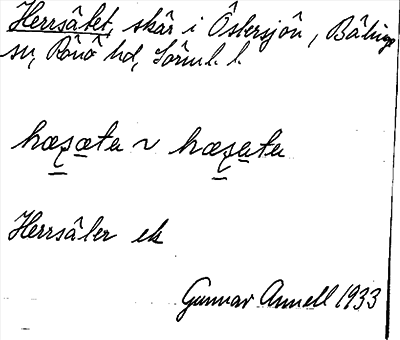 Herrsätet, skär i Östersjön, Bälinge
sn, Rönö hd, Sörml. l.
hæʂæ̱ta ~ hæʂa̱ta
Herrsäter ek
Gunnar Annell 1933